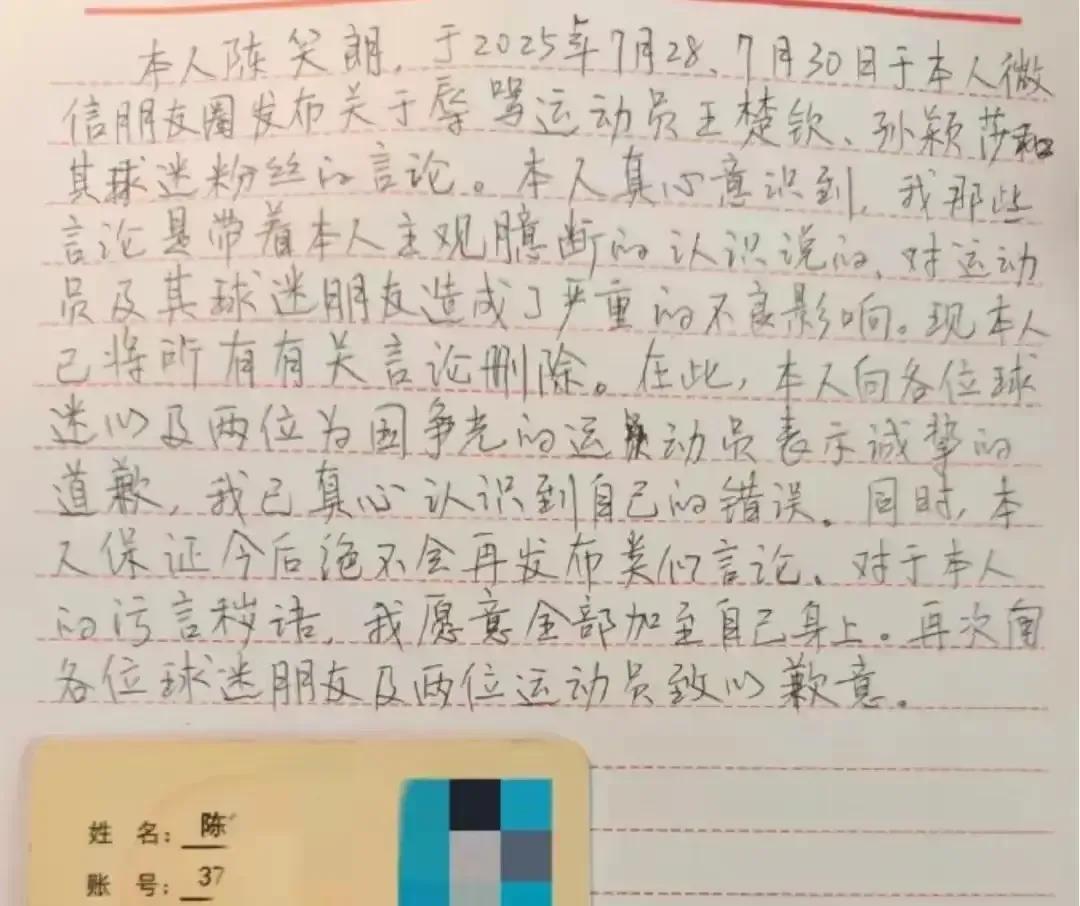 本人陈笑朗，于2025年7月28、7月30日于本人微
信朋友圈发布关于辱骂运动员王楚钦、孙颖莎和
其球迷粉丝的言论。本人真心意识到，我那些
言论是带着本人主观臆断的认识说的，对运动
员及其球迷朋友造成了严重的不良影响。现本人
已将所有有关言论删除。在此，本人向各位球
迷以及两位为国争光的运动员表示诚挚的
道歉，我已真心认识到自己的错误。同时，本
人保证今后绝不会再发布类似言论。对于本人
的污言秽语，我愿意全部加至自己身上。再次向
各位球迷朋友及两位运动员致以歉意。
姓 名：陈
账 号：37